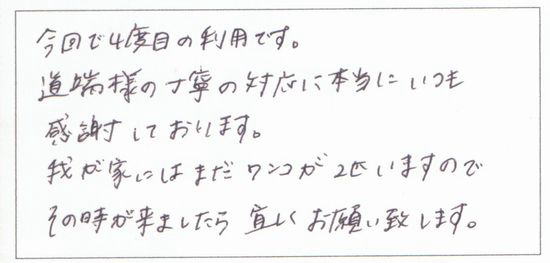 今回で4度目の利用です。
道端様の丁寧の対応に本当にいつも
感謝しております。
我が家にはまだワンコが2匹いますので
その時が来ましたら宜しくお願い致します。